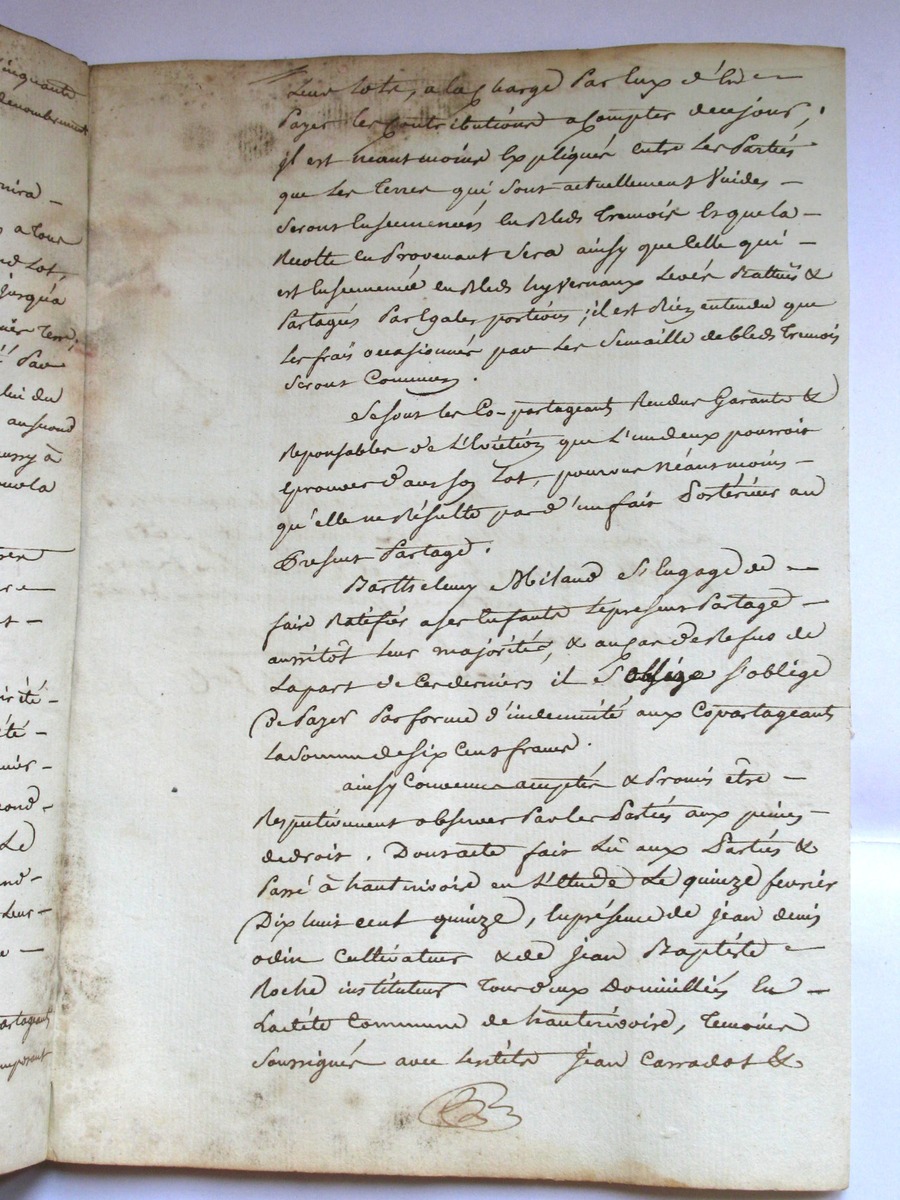 Leurs lots, a la Charge Par Eux d'En
Payer les Contributions a Compter de ce jour,
il est neantmoins Expliqués Entre Les Parties
que Les Terres qui Sont actuellement Vuides –
Seront Ensemencées En Bleds Tremois Et que la –
Recolte En Provenant Sera ainsy que Celle qui –
est Ensemencée en Bleds hyvernaux Levée Battuë &
Partagés Par Egales portions ; il est Bien entendu que
Les frais occasionnés par Les Semaille de bleds Tremois
Seront Communs.
Se sont les Co-partageants Rendus Garants &
Reponsables de L'Eviction que L'un deux pourroit
Eprouver dans son Lot, pourvu Néantmoins –
qu'elle ne Résulte pas d'un fait Postérieur au
Present Partage.
Barthelemy Miland S'Engage de –
faire Ratifier a ses Enfants Le present Partage –
aussitôt Leur majorité, & au Cas de Refus de
La part de Ces derniers il S'oblige S'oblige
De Payer Par forme d'indemnité aux Copartageants
La Somme de Six Cent francs.
ainsy Convenu accepté & Promis être –
Respectivement observer Par les Parties aux peines –
de droit. Dont acte fait Lu aux Parties &
Passé à hauterivoire en L'Etude Le quinze fevrier
Dix huit cent quinze, En présence de jean denis
odin Cultivateur & de Jean Baptiste –
Roche instituteur Tous deux Domiciliés En –
La dite Commune de hauterivoire, Temoins
Soussignés avec Les dits Jean Carradot &
inquante
denombrement
nd Lot,
jusqu'a
Par
lui du
Le
Leur –
artageants